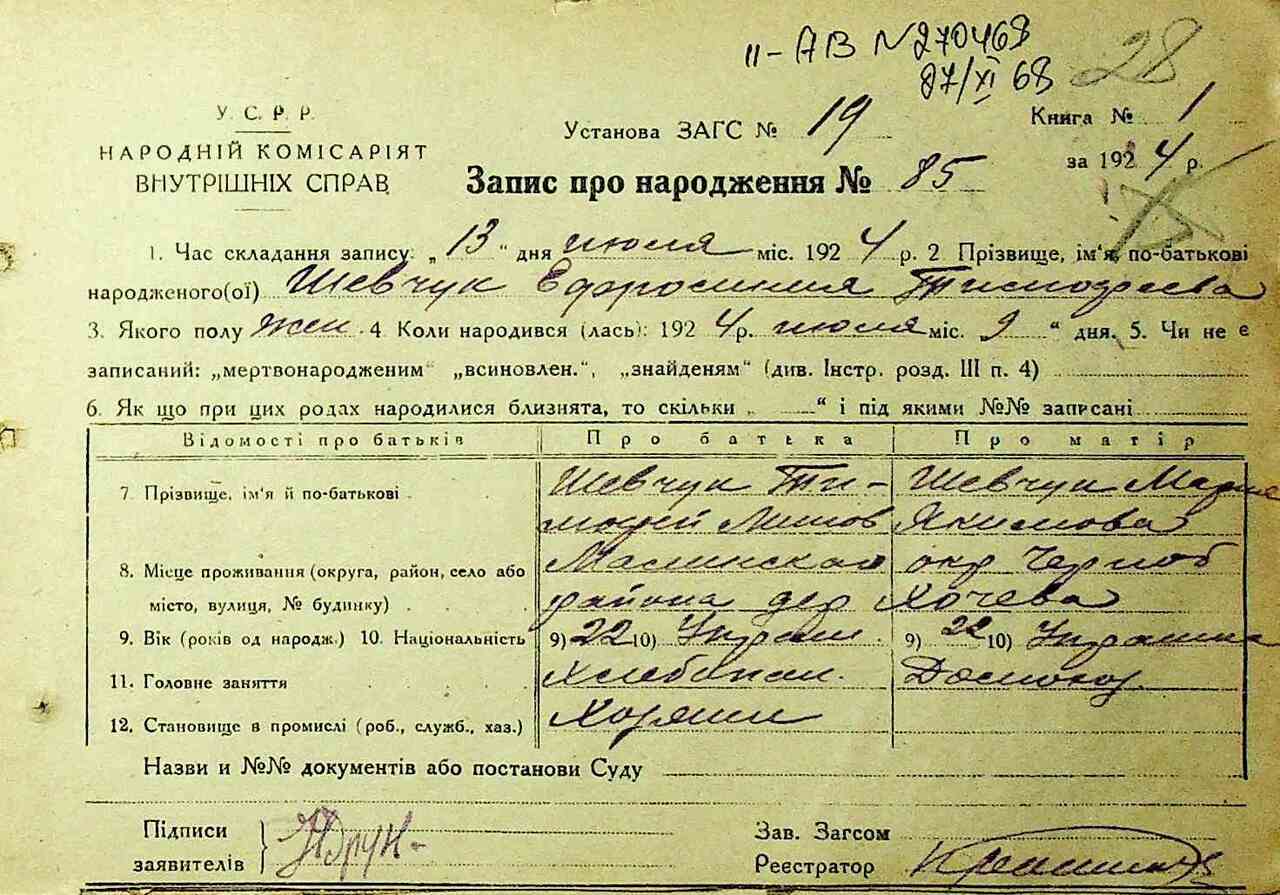 II-АВ N270468
27/XI 68
28
У. С. Р. Р.
НАРОДНІЙ КОМІСАРІЯТ
ВНУТРІШНІХ СПРАВ
Установа ЗАГС № 19
Книга № 1
за 1924 р.
Запис про народження № 85
1. Час складання запису: „13" дня июля міс. 1924 р. 2 Прізвище, ім'я, по-батькові
народженого(ої) Шевчук Ефросиния Тимофеева
3. Якого полу жен. 4 Коли народився (лась): 1924 р. июля міс. „9" дня. 5. Чи не є
записаний: „мертвонародженим" „всиновлен.", „знайденям" (див. Інстр. розд. III п. 4)
6. Як що при цих родах народилися близнята, то скільки „ " і під якими №№ записані
Відомості про батьків Про батька Про матір
7 Прізвище, ім'я й по-батькові Шевчук Ти- Шевчук Мария
мофей Якимова
8. Місце проживання (округа, район, село або Малинская окр Черноб
місто, вулиця, № будинку) района дер Хочева
9. Вік (років од народж.) 10. Національність 9) 22 10) Украин. 9) 22 10) Украинка
11. Головне заняття Хлебопаш. Домохоз.
12. Становище в промислі (роб., служб., хаз.) Хозяин
Назви и №№ документів або постанови Суду
Підписи
заявителів
Зав. Загсом
Реєстратор